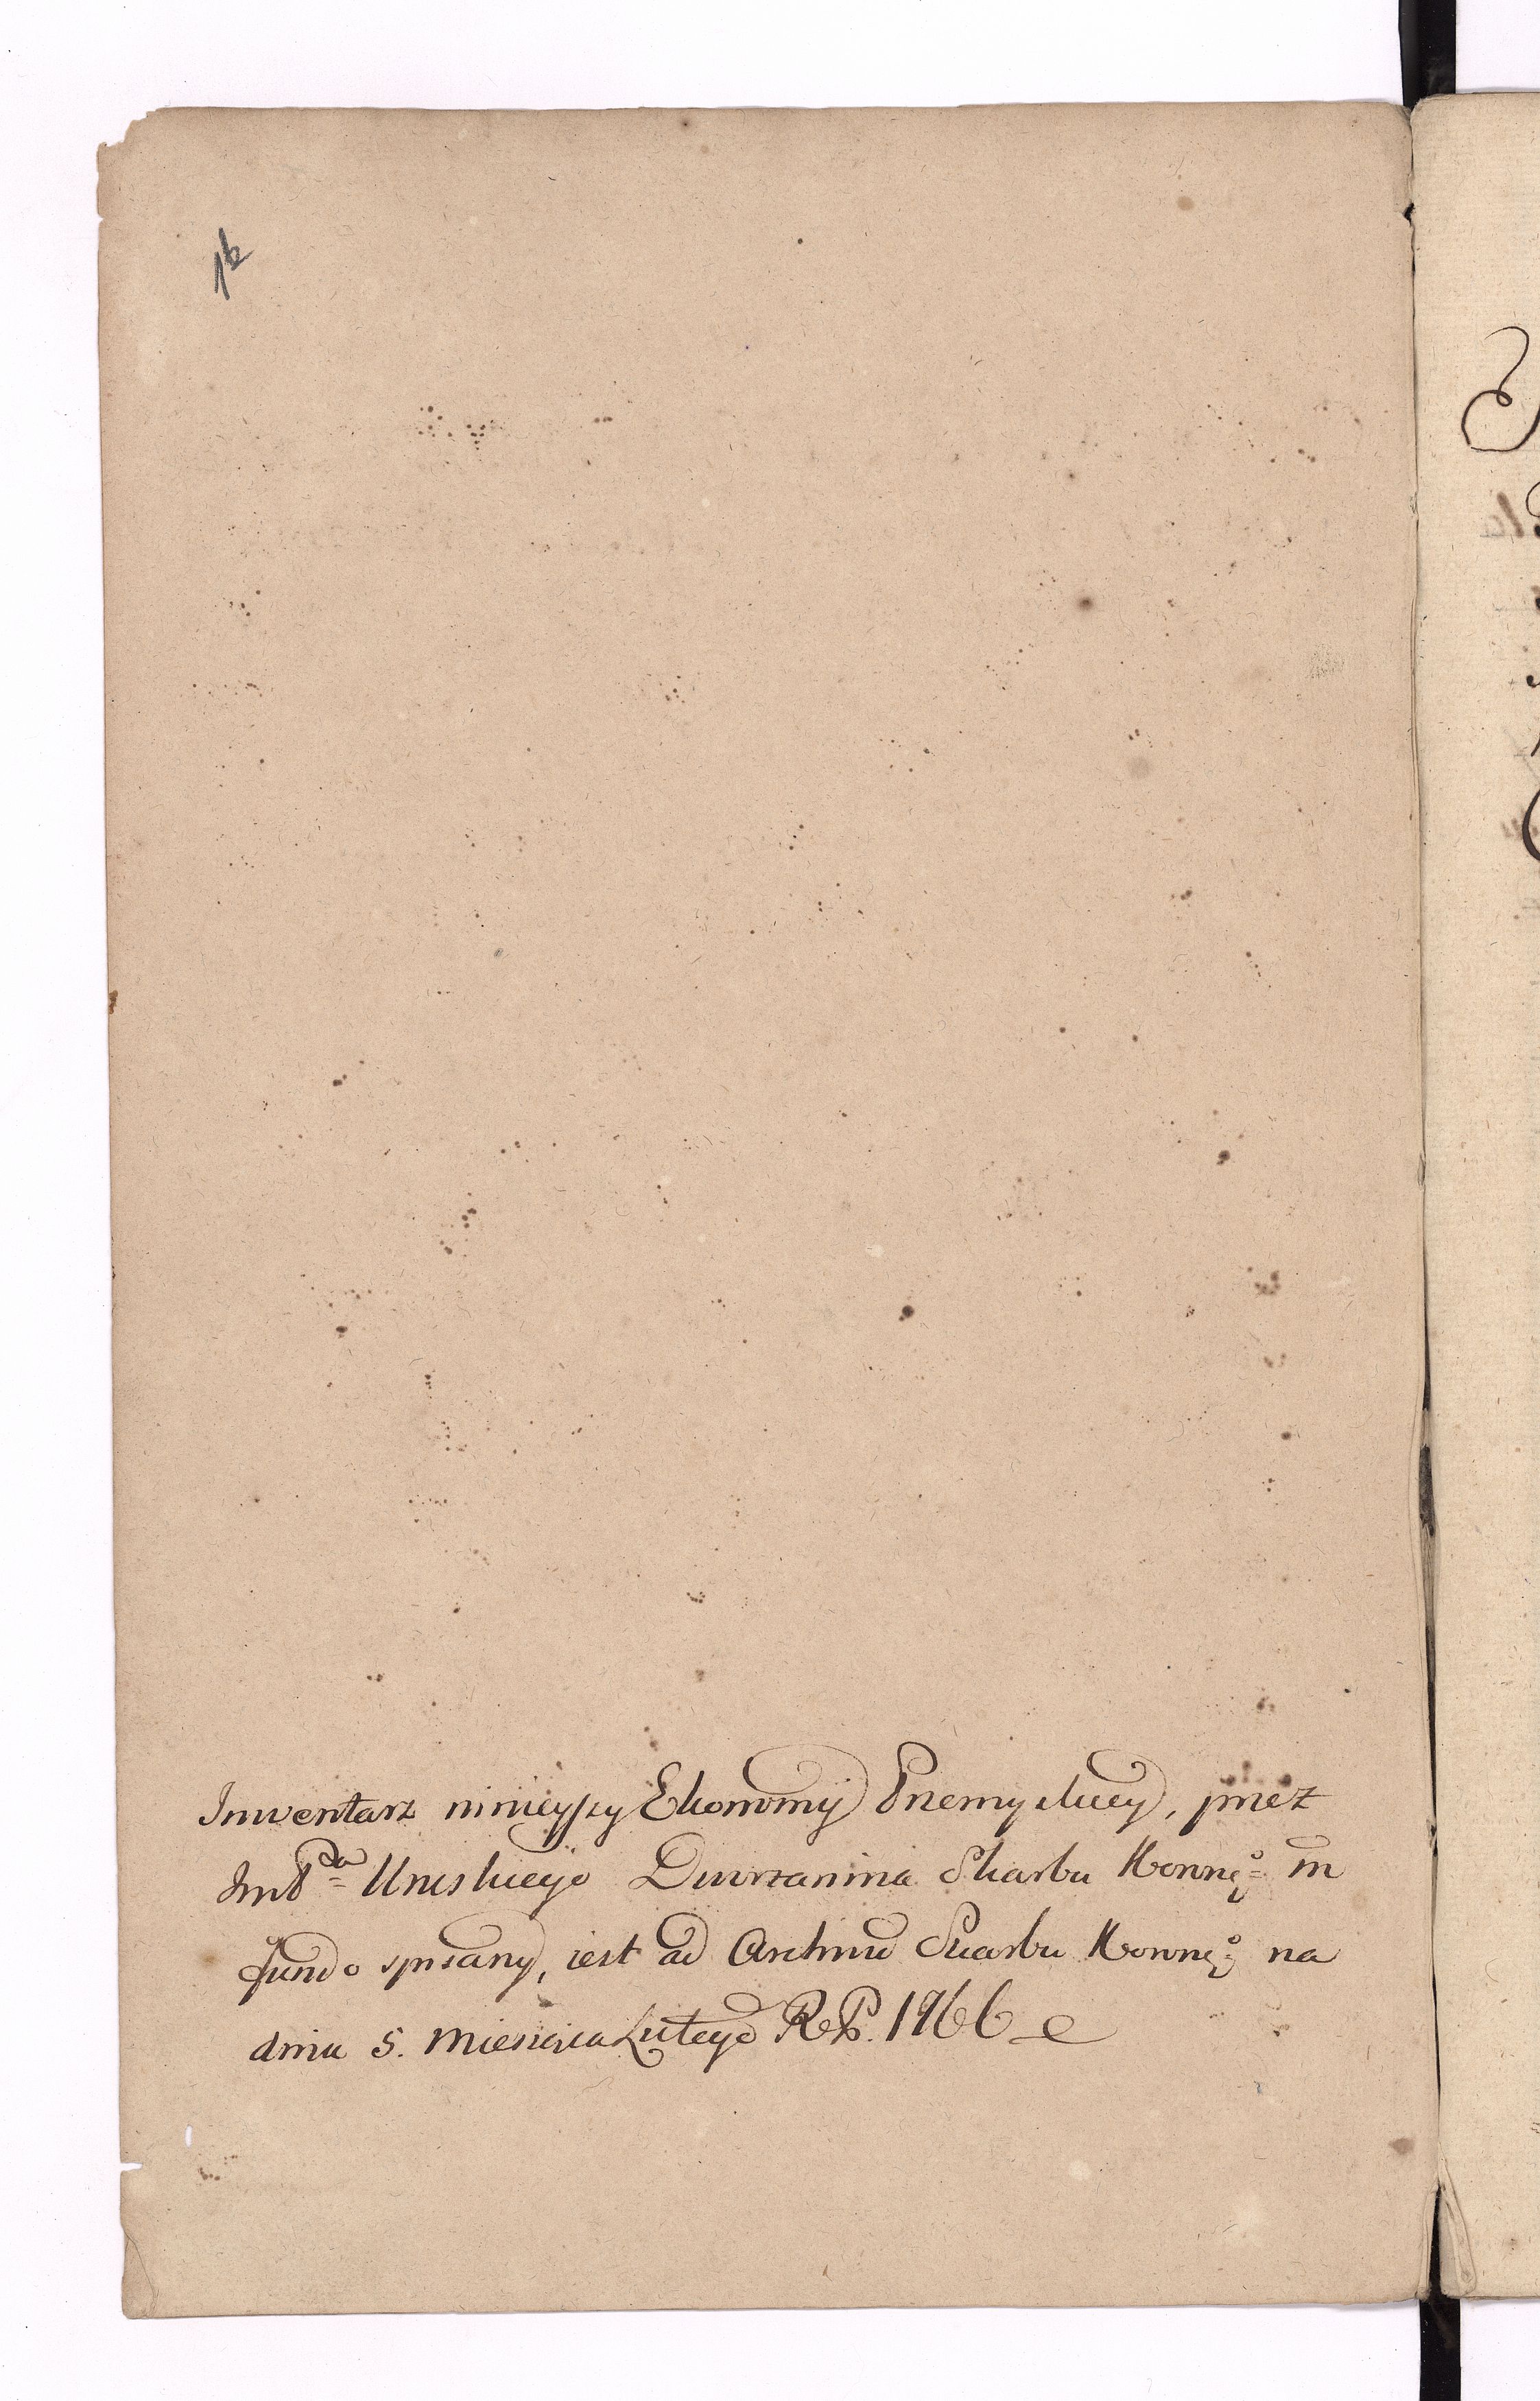 1b
Inwentarz ninieyszy Ekonomij Przemyskiey, przez
Im P<sup>a</sup> Uruskiego Dworzanina Skarbu Koronne<sup>o</sup> in
fundo spisany, iest ad Archiwũ Skarbu Koronne<sup>o</sup> na
dniu 5. Miesiąca Lutego R. P. 1766